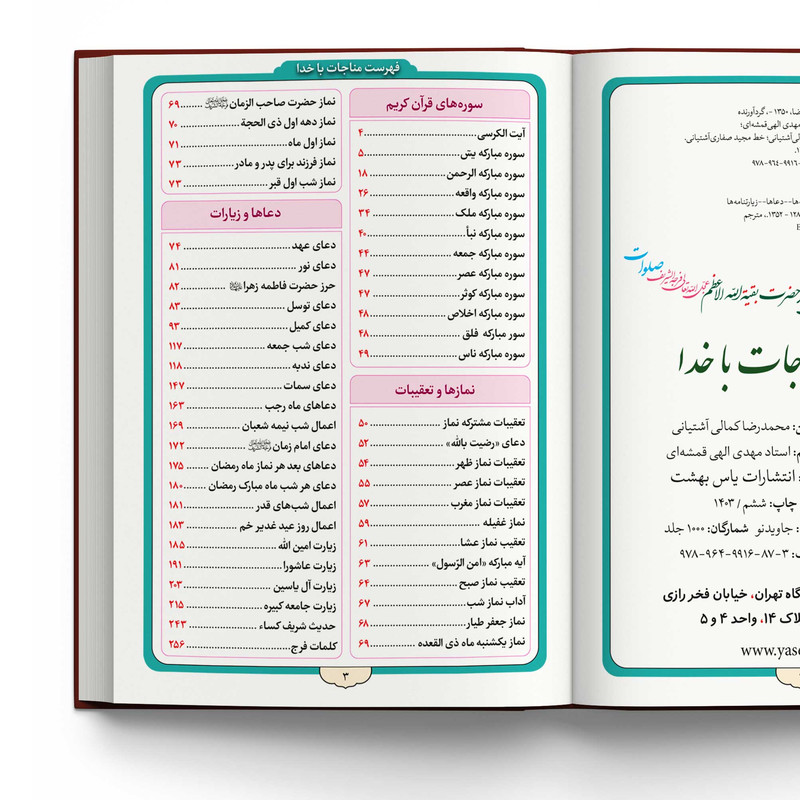 ضا، ۱۳۵۰ -، گردآورنده
مهدی الهی قمشه‌ای؛
لی‌آشتیانی؛ خط مجید صفاری‌آشتیانی.
۹۷۸-۹۶۴-۹۹۱۶-
ها--دعاها--زیارتنامه‌ها
۱۲۸ - ۱۳۵۲.، مترجم
صلوات
حضرت بقیة الله الاعظم
جات با خدا
محمدرضا کمالی آشتیانی
استاد مهدی الهی قمشه‌ای
انتشارات یاس بهشت
چاپ: ششم / ۱۴۰۳
جاویدنو شمارگان: ۱۰۰۰ جلد
۹۷۸-۹۶۴-۹۹۱۶-۸۷-۳
گاه تهران، خیابان فخر رازی
لاک ۱۴، واحد ۴ و ۵
www.yas
فهرست مناجات با خدا
سوره‌های قرآن کریم
آیت الکرسی ۴
سوره مبارکه یس ۵
سوره مبارکه الرحمن ۱۸
سوره مبارکه واقعه ۲۶
سوره مبارکه ملک ۳۴
سوره مبارکه نبأ ۴۰
سوره مبارکه جمعه ۴۴
سوره مبارکه عصر ۴۷
سوره مبارکه کوثر ۴۷
سوره مبارکه اخلاص ۴۸
سور مبارکه فلق ۴۸
سوره مبارکه ناس ۴۹
نمازها و تعقیبات
تعقیبات مشترکه نماز ۵۰
دعای «رضیت بالله» ۵۲
تعقیبات نماز ظهر ۵۴
تعقیبات نماز عصر ۵۵
تعقیبات نماز مغرب ۵۷
نماز غفیله ۵۹
تعقیب نماز عشا ۶۱
آیه مبارکه «امن الرّسول» ۶۳
تعقیب نماز صبح ۶۴
آداب نماز شب ۶۷
نماز جعفر طیار ۶۸
نماز یکشنبه ماه ذی القعده ۶۹
نماز حضرت صاحب الزمان ۶۹
نماز دهه اول ذی الحجة ۷۰
نماز اول ماه ۷۱
نماز فرزند برای پدر و مادر ۷۳
نماز شب اول قبر ۷۳
دعاها و زیارات
دعای عهد ۷۴
دعای نور ۸۱
حرز حضرت فاطمه زهرا ۸۲
دعای توسل ۸۳
دعای کمیل ۹۳
دعای شب جمعه ۱۱۷
دعای ندبه ۱۱۸
دعای سمات ۱۴۷
دعاهای ماه رجب ۱۶۳
اعمال شب نیمه شعبان ۱۶۹
دعای امام زمان ۱۷۲
دعاهای بعد هر نماز ماه رمضان ۱۷۵
دعای هر شب ماه مبارک رمضان ۱۸۰
اعمال شب‌های قدر ۱۸۱
اعمال روز عید غدیر خم ۱۸۳
زیارت امین الله ۱۸۵
زیارت عاشورا ۱۹۱
زیارت آل یاسین ۲۰۳
زیارت جامعه کبیره ۲۱۵
حدیث شریف کساء ۲۴۳
کلمات فرج ۲۵۶
۳